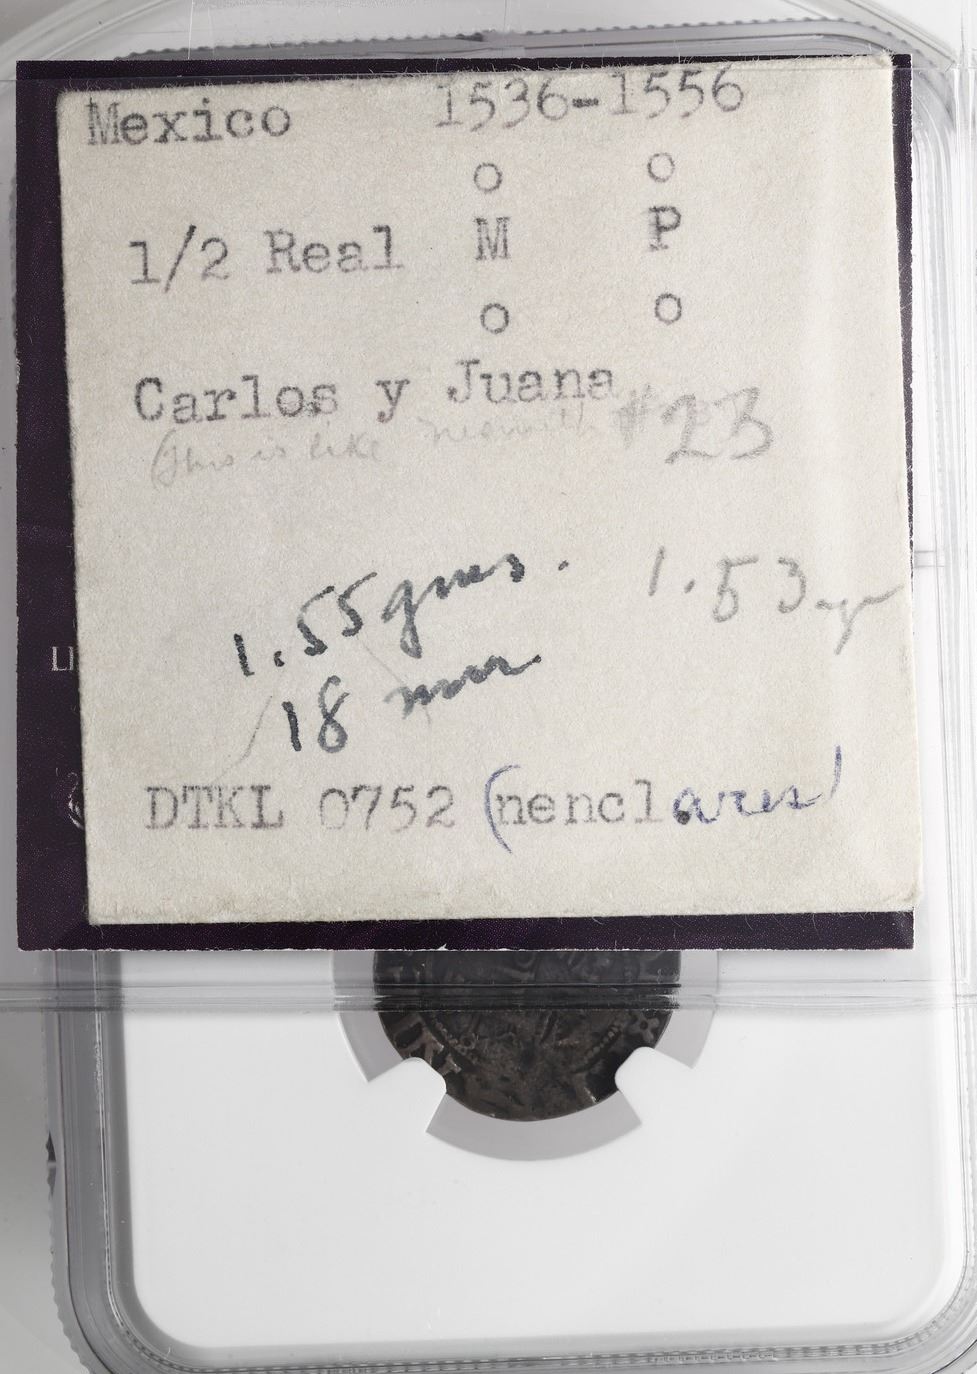 Mexico 1536-1556
o o
1/2 Real M P
o o
Carlos y Juana
(this is like Nesmith #23
1.55 gms. 1.53
18 mm
LI
DTKL 0752 (nenclares)